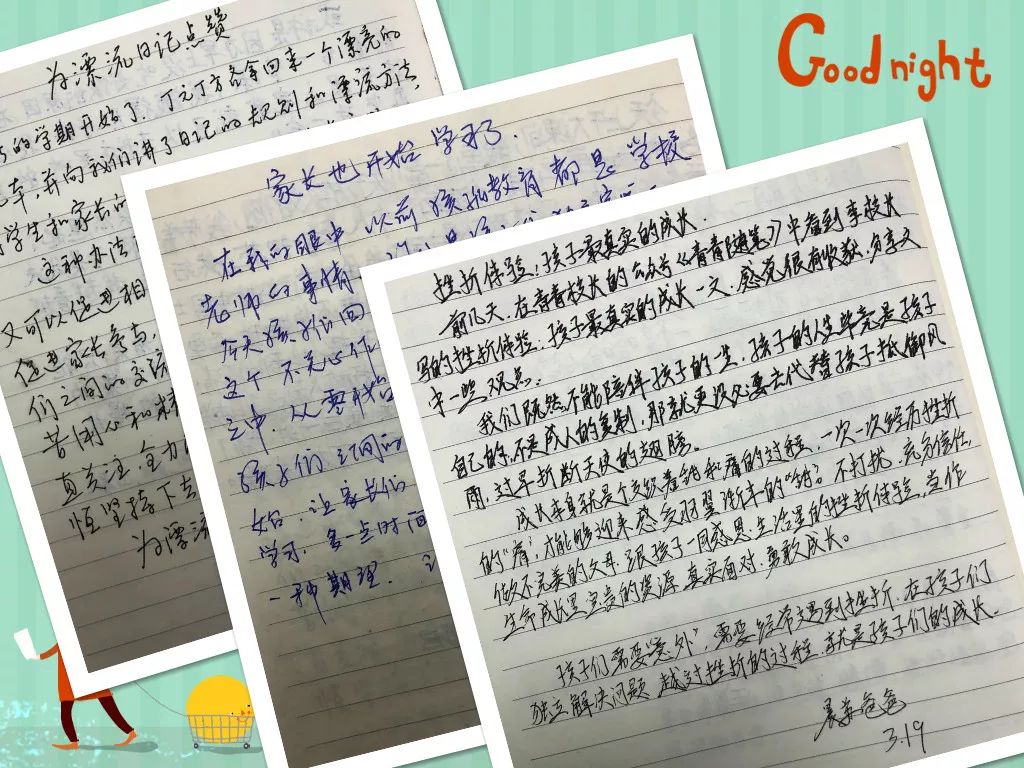 Good night
为漂流日记点赞
的学期开始了.丁元丁方各拿回来一个漂亮的
并向我们讲了日记的规则和漂流方法.
学生和家长
这种办法
又可以促进相
促进家长参与,
们之间的交流
苦用心和
直关注,全力
恒坚持下去
为漂流
家长也开始学习了.
在我的眼中以前孩子教育都是学校
老师的事情
今天孩子们回
这个不关心作
之中.从
孩子们之间的
始,让家长们
学习.多一点时间
一种期理.
挫折体验:孩子最真实的成长.
前几天.在青青校长的公众号《青青随笔》中看到李校长
写的挫折体验:孩子最真实的成长一文.感觉很有收获,分享文
中一些观点.
我们既然不能陪伴孩子的一生,孩子的人生毕竟是孩子
自己的,不是成人的复制,那就更没必要去代替孩子抵御风
雨,过早折断天使的翅膀.
成长本身就是个交织着绝和痛的过程,一次一次经历挫折
的"痛",才能够迎来感受羽翼渐丰的"绝"。不打扰,充分信任,
做不完美的父母,跟孩子一同感恩生活里的挫折体验,当作
生命成长里宝贵的资源,真实面对,勇敢成长。
孩子们需要"意外",需要经常遇到挫折,在孩子们
独立解决问题,越过挫折的过程,就是孩子们的成长.
爸爸
3.19